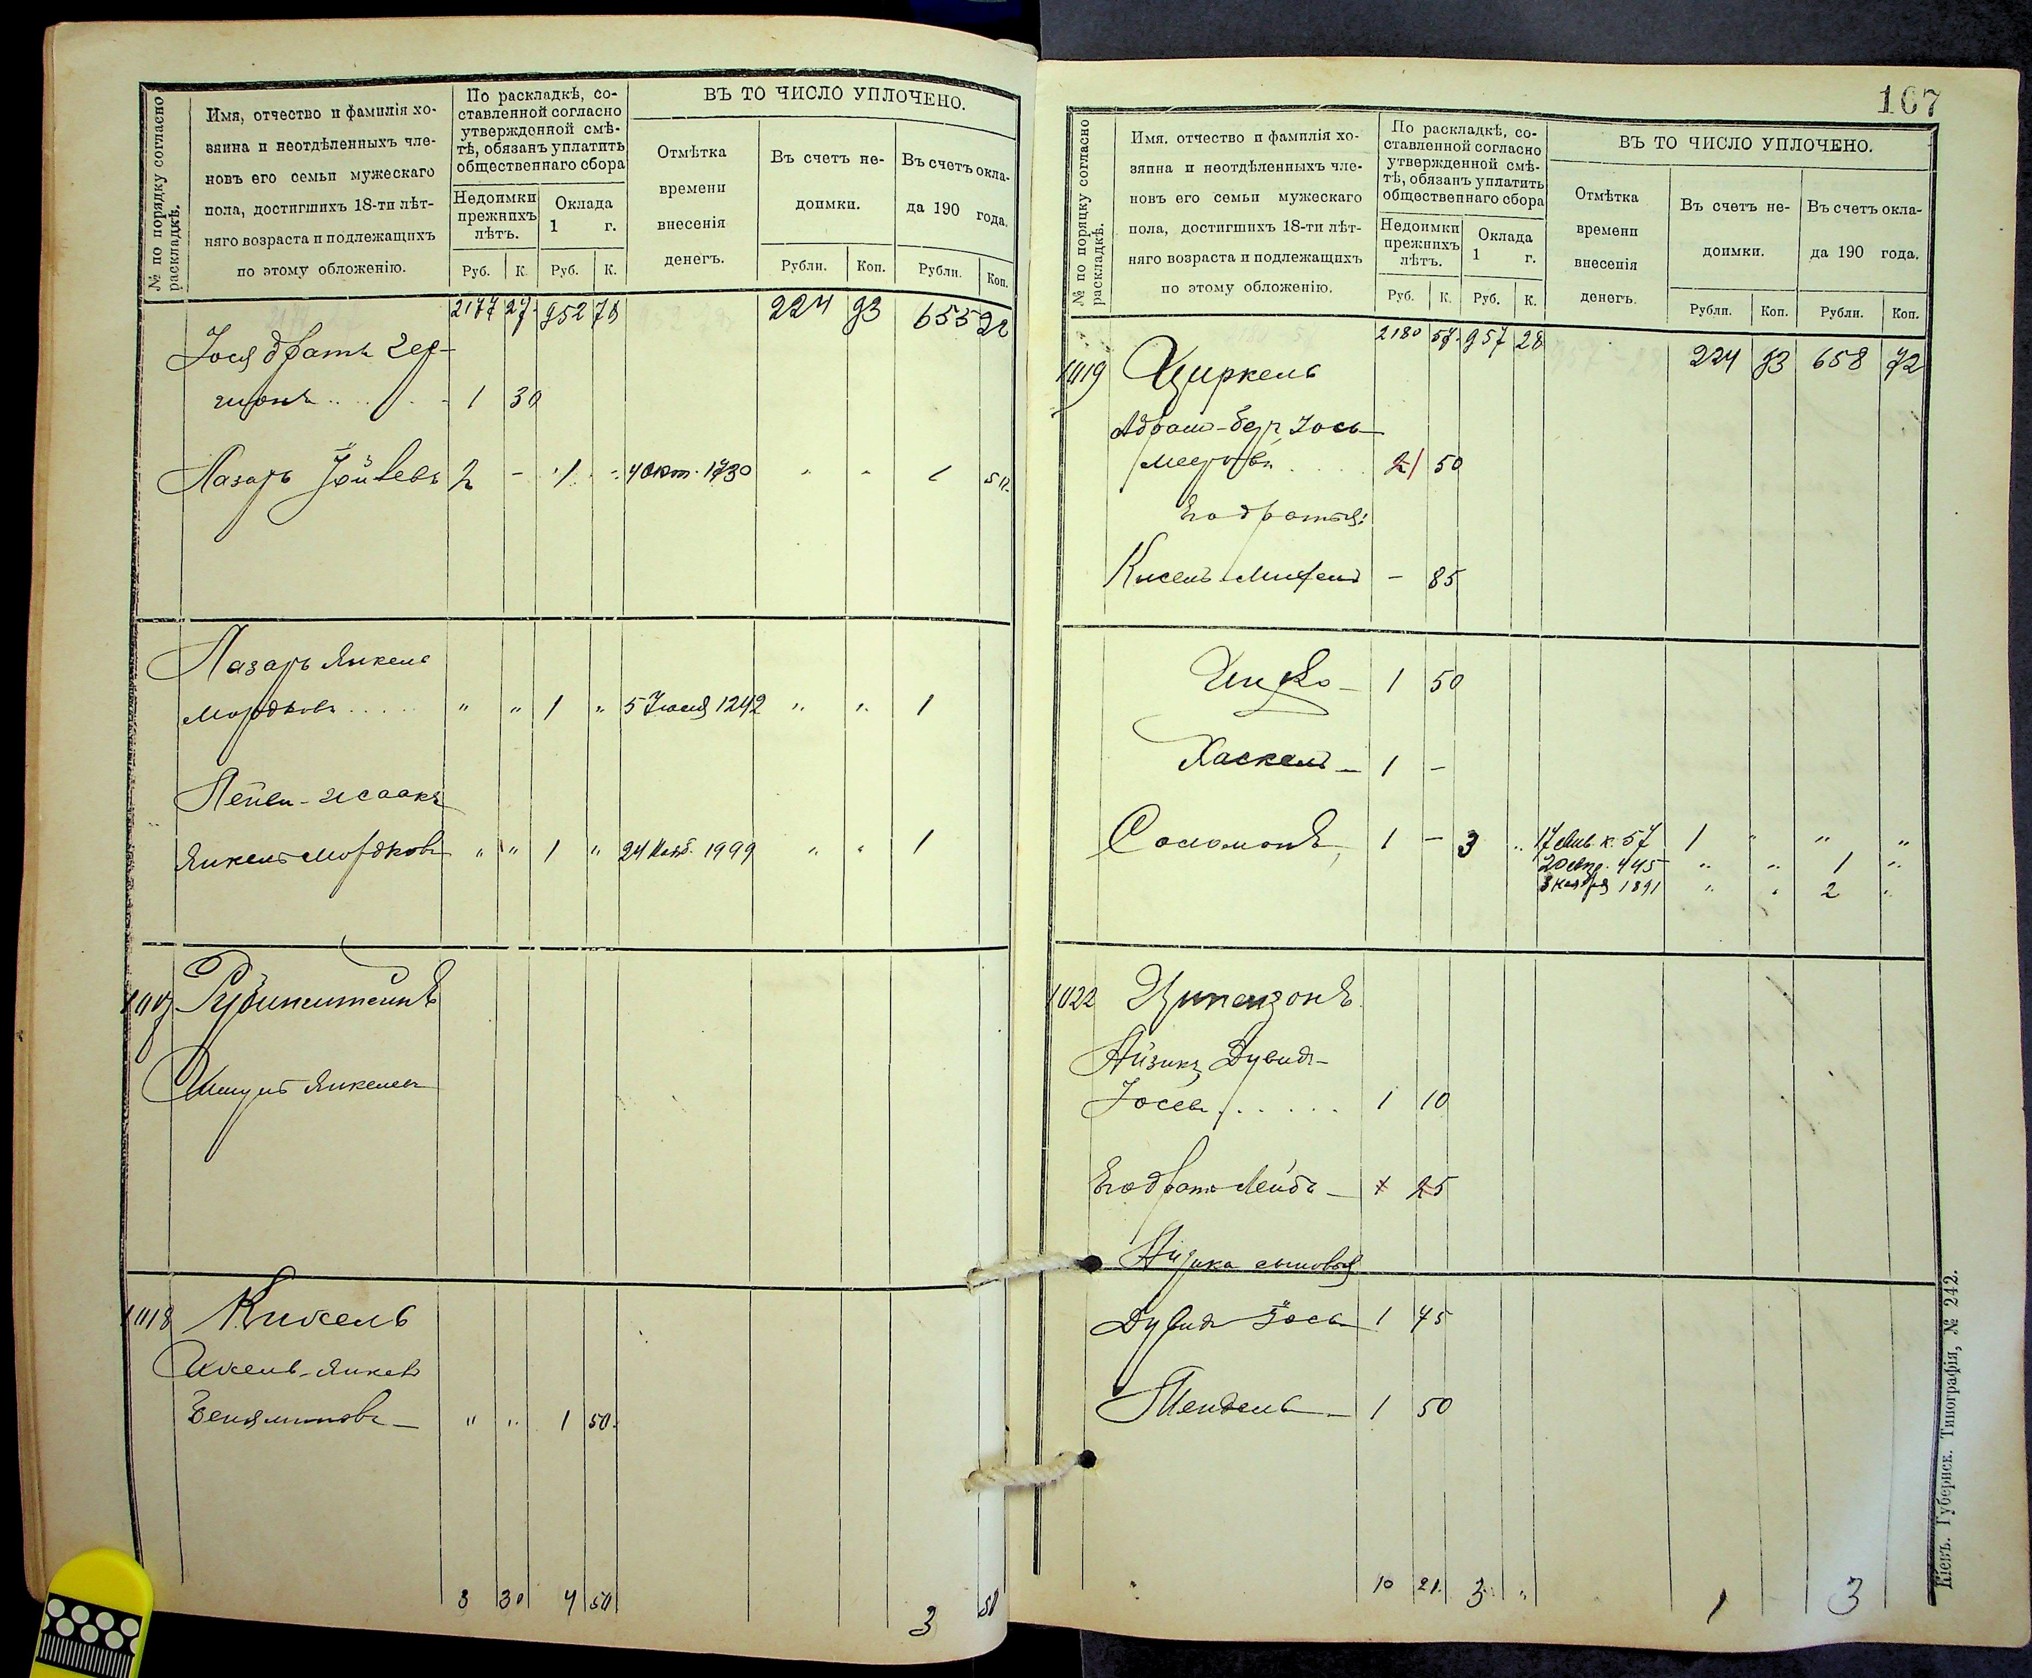 № по порядку согласно раскладкѣ.
Имя, отчество и фамилія хо-
зяина и неотдѣленныхъ чле-
новъ его семьи мужескаго
пола, достигшихъ 18-ти лѣт-
няго возраста и подлежащихъ
по этому обложенію.
По раскладкѣ, со-
ставленной согласно
утвержденной смѣ-
тѣ, обязанъ уплатить
общественнаго сбора
Недоимки
прежнихъ
лѣтъ.
Оклада
1 г.
Руб. К. Руб. К.
ВЪ ТО ЧИСЛО УПЛОЧЕНО.
Отмѣтка
времени
внесенія
денегъ.
Въ счетъ не-
доимки.
Въ счетъ окла-
да 190 года.
Рубли. Коп. Рубли. Коп.
2177 27 952 78 224 93 655 22
1 30
Лазарь 2 - 1 " 4 Окт. 1730 " " 1 50
Лазарь Янкель
Мордковъ " " 1 " 5 Іюля 1242 " " 1
Лейви-Исаакъ
Янкель Мордковъ " " 1 " 24 Нояб. 1999 " " 1
1017 Рубинштейнъ
Шмулъ Янкелевъ
1018 Кисель
Беньяминовъ " " 1 50
3 30 4 50 3 50
167
№ по порядку согласно раскладкѣ.
Имя, отчество и фамилія хо-
зяина и неотдѣленныхъ чле-
новъ его семьи мужескаго
пола, достигшихъ 18-ти лѣт-
няго возраста и подлежащихъ
по этому обложенію.
По раскладкѣ, со-
ставленной согласно
утвержденной смѣ-
тѣ, обязанъ уплатить
общественнаго сбора
Недоимки
прежнихъ
лѣтъ.
Оклада
1 г.
Руб. К. Руб. К.
ВЪ ТО ЧИСЛО УПЛОЧЕНО.
Отмѣтка
времени
внесенія
денегъ.
Въ счетъ не-
доимки.
Въ счетъ окла-
да 190 года.
Рубли. Коп. Рубли. Коп.
2180 57 957 28 224 93 658 72
1019 Циркель
Абрам-Бер Іось-
Мееровъ 21 50
Его братья:
Кисель - 85
1 50
Хаскель - 1 -
Соломонъ 1 - 3 " 57 1 " " "
445 " " 1 "
3 Ноября 1891 " " 2 "
1022 Ципензонъ
Айзикъ Дувид-
Іосевъ 1 10
Его братъ Лейбъ - 1 25
Айзика сыновья
Дувид Іось 1 75
Мендель - 1 50
10 21 3 " 1 3
Кіевъ. Губернск. Типографія, № 242.